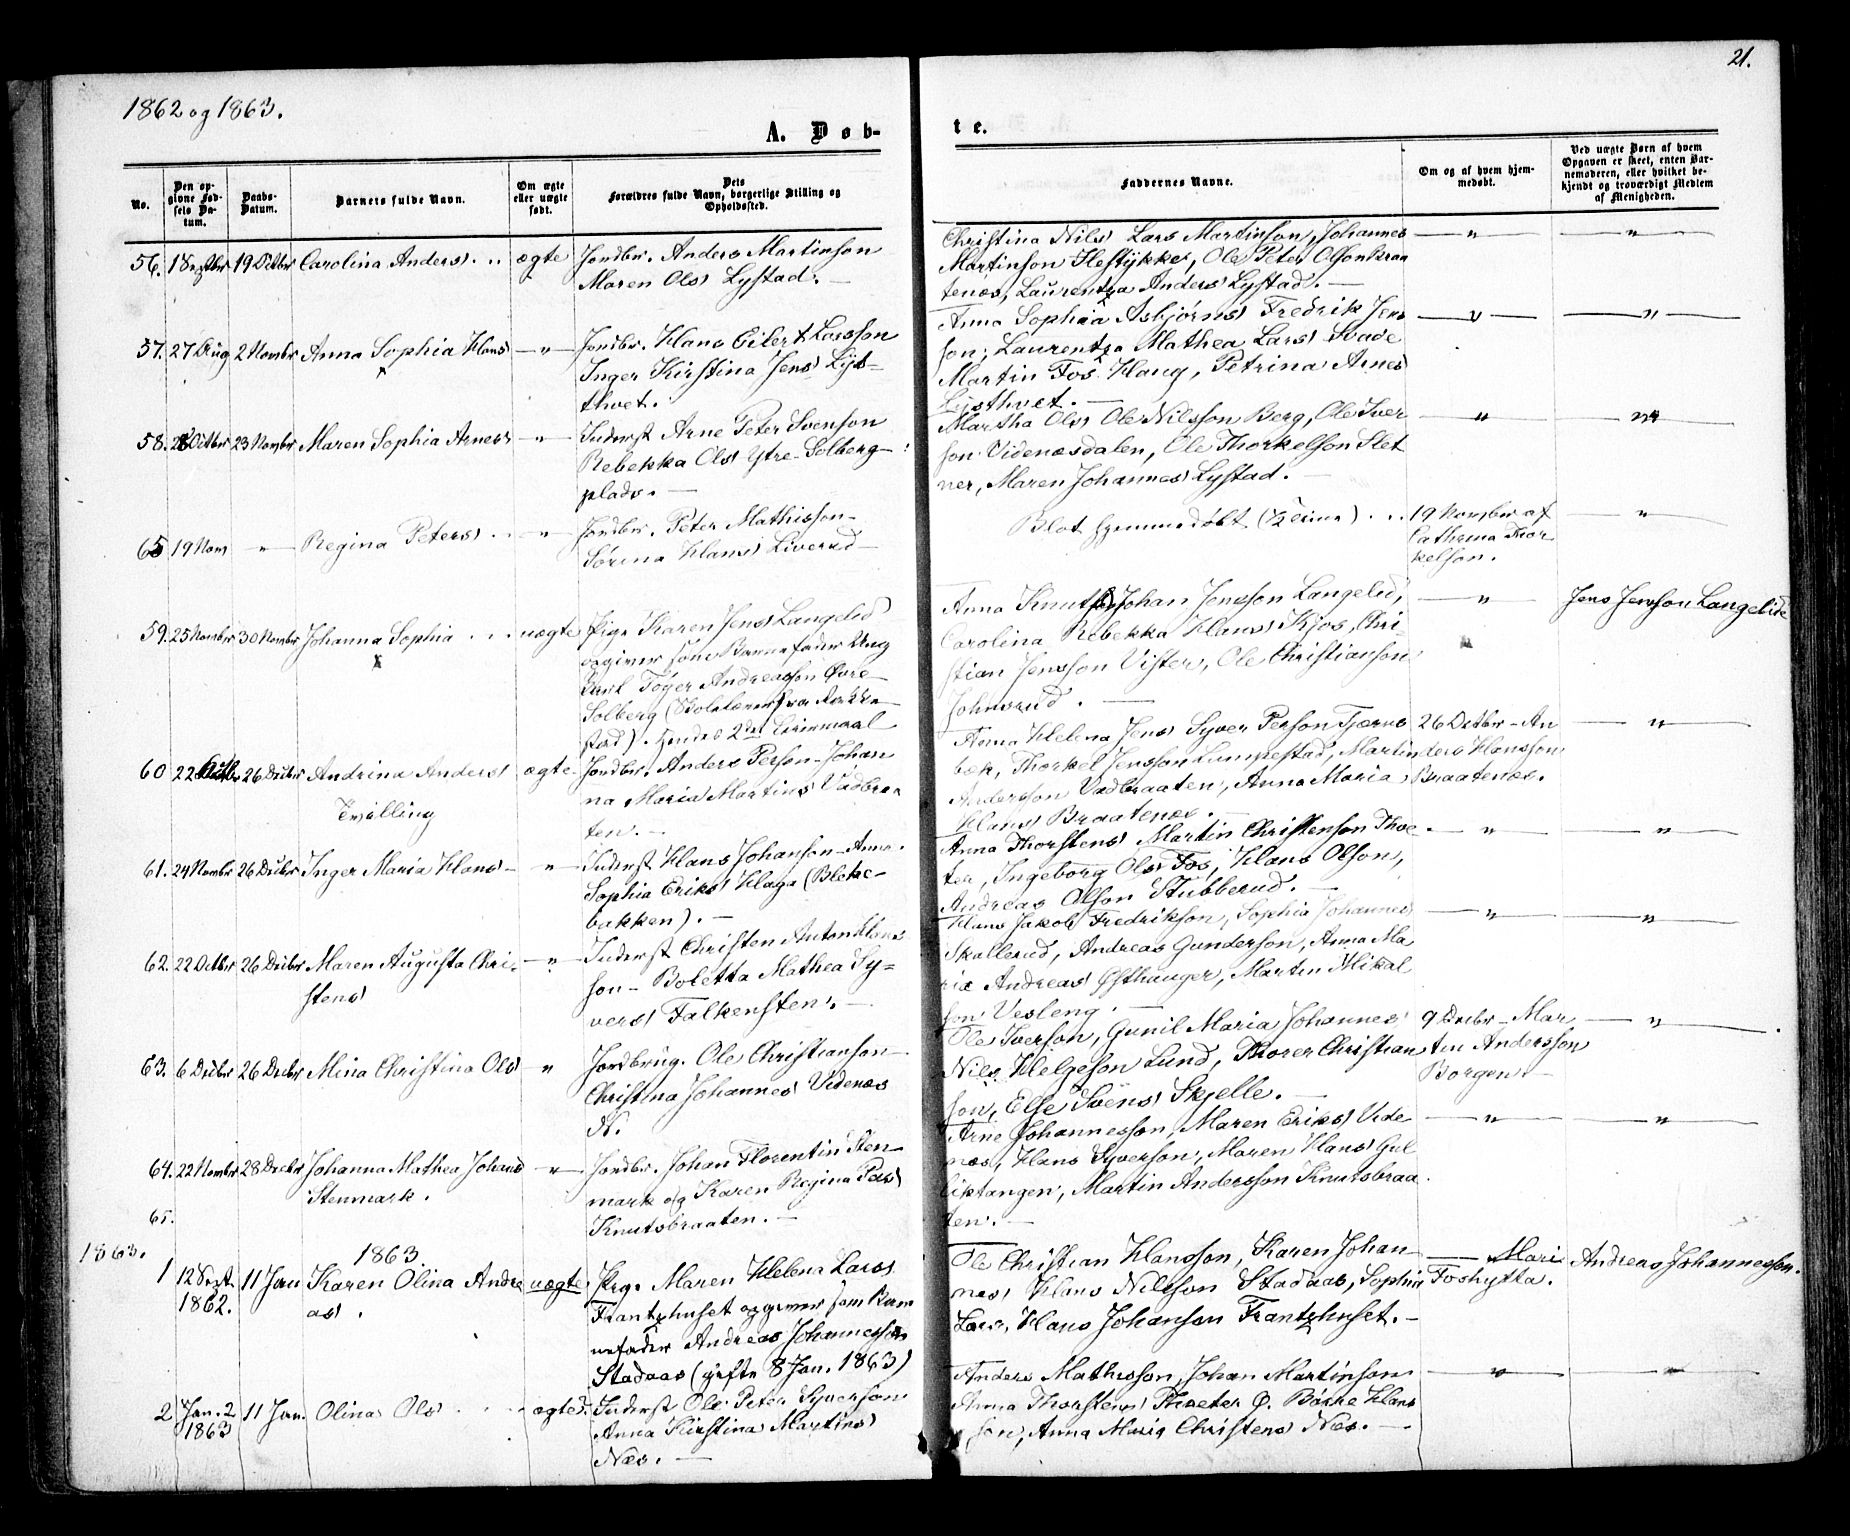 21.
1862 og 1863.
A. Døb-
te.
No.
Den op-
givne Fød-
sels Da-
tum.
Daabs-
Datum.
Barnets fulde Navn.
Om ægte
eller uægte
født.
Dets
Forældres fulde Navn, borgerlige Stilling og
Opholdssted.
Faddernes Navne.
Om og af hvem hjem-
medøbt.
Ved uægte Børn af hvem
Opgaven er skeet, enten Bar-
nemoderen, eller hvilket be-
kjendt og troværdigt Medlem
af Menigheden.
56. 19 Octbr Carolina Anders ægte Jordbr. Anders Martinson
Maren Ols Lystad. —
Christina Nils Lars Martinson, Johannes — " — — " —
Martinson Hestykke, Ole Peter Olson Braa
tenæs, Laurentza Anders Lystad. —
57. 27 Aug 2 Novmbr Anna Sophia Hans — " — Jordbr. Hans Eilert Larsson
Inger Kirstina Jens Lys-
thvet.
Anna Sophia Asbjørns Fredrik Jens — " — — " —
son, Laurentza Mathea Lars Svade
Martin Fos Haug, Petrina Arnes
Lysthvet. —
58. Octbr 23 Novmbr Maren Sophia Arnes — " — Inderst Arne Peter Svenson
Rebekka Ols Ytre Solberg-
plads. —
Martha Ols Ole Nilsson Berg, Ole Iver — " — — " —
son Videnæsdalen, Ole Thorkelson Slet
ner, Maren Johannes Lystad. —
65 19 Nov — " — Regina Peters — " — Jordbr. Peter Mathisson —
Sørina Hans Liverud —
Blot hjemmedøbt 19 Novmber af — " —
Cathrina Thor
kelson.
59. 25 Novmbr 30 Novmbr Johanna Sophia uægte Pige Karen Jens Langelid
opgiver som Barnefader Ung
karl Tøger Andreasson Øvre
Solberg (Skolelærer fra Rakke
stad). Hendes 2det Leiermaal
Anna Knuts Johan Jensson Langelid, — " — Jens Jensson Langelid
Carolina Rebekka Hans Kjos, Chri-
stian Jensson Vister, Ole Christianson
Johnsrud. —
60 22 26 Decbr Andrina Anders ægte Jordbr. Anders Person — Johan
Tvilling
na Maria Martins Vadbraa
ten. —
Anna Helena Jens Syver Person Tjærns 26 Octbr — An — " —
bæk, Thorkel Jensson Lumpestad, Martin ders Hansson
Andersson Vadbraaten, Anna Maria Braatenæs.
Hans Braatenæs. —
61. 24 Novmbr 26 Decbr Inger Maria Hans — " — Inderst Hans Johanson — Anna
Sophia Eriks Haga (Bleke-
bakken). —
Anna Thorstens Martin Christenson Thoe — " — — " —
ter, Ingeborg Ols Fos, Hans Olson,
Andreas Olson Stubberud. —
62. 22 Octbr 26 Decbr Maren Augusta Chri- — " — Inderst Christen Anton Hans
stens
son — Boletta Mathea Sy-
vers Falkensten. —
Hans Jakob Fredrikson, Sophia Johannes — " — — " —
Skallerud, Andreas Gunderson, Anna Ma
ria Andreas Østhauger, Martin Mikal
son Vesleng. —
63. 6 Decbr 26 Decbr Mina Christina Ols — " — Jordbrug. Ole Christianson —
Christina Johannes Videnæs
N.
Ole Iverson, Gunil Maria Johannes 9 Decbr — Mar — " —
Nils Helgeson Lund, Thorer Christian tin Andersson
son, Else Svens Skjelle. — Borgen. —
64. 22 Novmbr 28 Decbr Johanna Mathea Johans — " — Jordbr. Johan Florentin Sten-
Stenmark.
mark og Karen Regina Pers
Knutsbraaten. —
Arne Johannesson, Maren Eriks Vide — " — — " —
næs, Hans Syverson, Maren Hans Gul
liktangen, Martin Andersson Knutsbraa
ten. —
65.
1863. 1863
1 12 Sept. 11 Jan Karen Olina Andre uægte Pige Maren Helena Lars
1862. as.
Frantzhuset opgiver som Barn
nefader Andreas Johannesson
Stadaas (gifte 8 Jan. 1863)
Ole Christian Hansson, Karen Johan — Mari Andreas Johannesson.
nes Hans Nilsson Stadaas, Sophia Foshytta.
Lars, Hans Johanson Frantzhuset. —
2 Jan. 2 11 Jan. Olina Ols ægte Inderst Ole Peter Syverson
1863
Anna Kirstina Martins
Næs. —
Anders Mathisson, Johan Martinson — " — — " —
Anna Thorstens Thoeter Ø. Børre Hans
son, Anna Maria Christens Næs. —